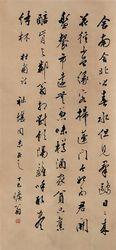 舍南舍北皆春水但見群鷗日日來
花徑不曾緣客掃蓬門今始為君開
盤飧市遠無兼味樽酒家貧只舊
醅肯與鄰翁相對飲隔籬呼取盡
餘杯 杜甫詩